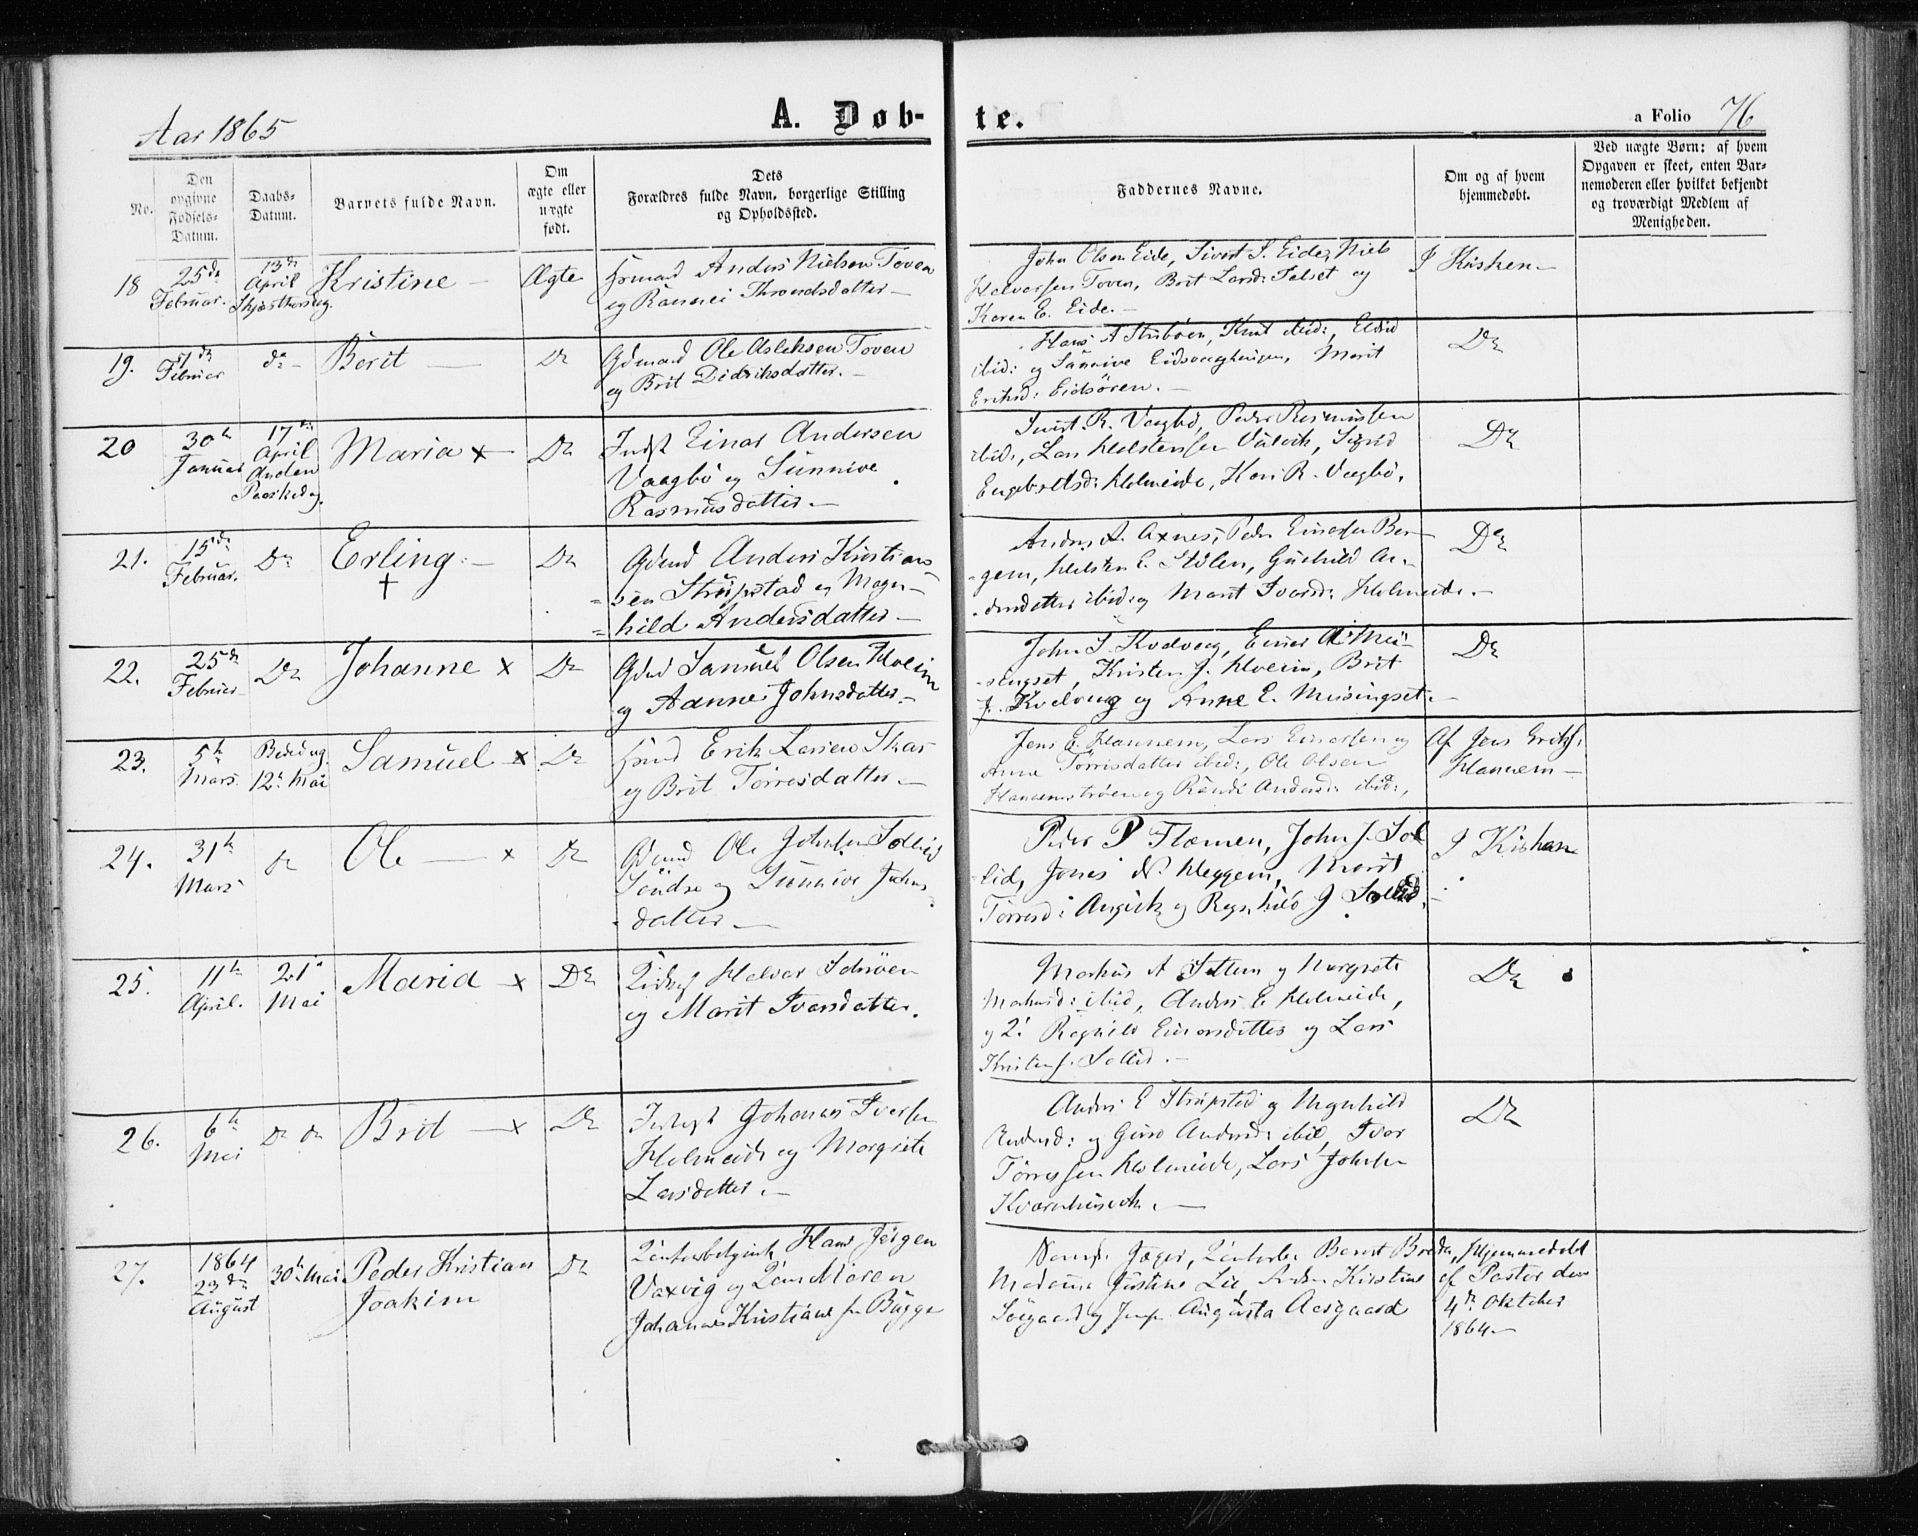 Aar 1865
A. Døb-
te.
a Folio 76
No.
Den
opgivne
Fødsels-
Datum.
Daabs-
Datum.
Barnets fulde Navn.
Om
ægte eller
uægte
født.
Dets
Forældres fulde Navn, borgerlige Stilling
og Opholdssted.
Faddernes Navne.
Om og af hvem
hjemmedøbt.
Ved uægte Børn: af hvem
Opgaven er skeet, enten Bar-
nemoderen eller hvilket bekjendt
og troværdigt Medlem af
Menigheden.
18
25de
Februar.
13de
April
Skjærthorsdag.
Kristine –
Ægte
Anders Nielsen Toven
og Rannei Throndsdatter –
John Olsen Eide, Sivert S. Eide, Niels
Halvorsen Toven, Brit Larsd: Falset og
Karen E. Eide. –
I Kirken –
19.
Februar
do –
Berit –
Do
Gdmand Ole Aslaksen Toven
og Brit Didriksdatter. –
Hans A Stubøen, Knut ibid:,
ibid: og Sunnive Marit
Eriksd: Eidsøren. –
Do
20
30te
Januar
17de
April
Anden
Paaskedag.
Maria x –
Do
Indst Einar Andersen
Vaagbø og Sunnive
Rasmusdatter –
R. Vaagbø, Peder Rasmussen
ibid:, Lars Sigrid
Engebretsd: Holmeide, Kari R. Vaagbø.
Do
21.
15de
Februar.
Do
Erling. –
†
Do
Gdmd Anders Kristian-
sen Strupstad og Magn-
hild Andersdatter –
Anders A. Axnes, Peder Einarsen Ber-
gem, Holsten E. Stølen, Gunhild An-
dersdatter ibid og Marit Ivarsd: Holmeide. –
Do
22.
25de
Februar
Do
Johanne x
Do
Gdmd Samuel Olsen Hoeim
og Aanne Johnsdatter –
John S. Kvalvaag, Einar A Mei-
singset, Kristen J. Hoeim, Brit
J. Kvalvaag og Anne E. Meisingset. –
Do
23.
5te
Mars.
Bededag
12te Mai
Samuel x
Do
Erik Larsen Skar
og Brit Tørresdatter –
Jens E. Hannem, Lars Einarsen og
Anne Tørrisdatter ibid:, Ole Olsen
Hannemstrøen og Randi Andersd: ibid:,
Af Jens Eriks:
Hannem –
24.
31te
Mars
do
Ole – x
Do
Gdmd Ole Johnsen Sollid
Søndre og Sunnive Johns
datter –
Peder P Flemmen, John J. Sol
lid, Jonas N. Heggem, Marit
Tørresd: Angvik og Ragnhild J Sollid. –
I Kirken
25.
11te
April.
21de
Mai
Maria – x
Do
Halvor
og Marit Ivarsdatter.
Markus A Settem og Margrete
Markusd: ibid, Anders E Holmeide,
og Ragnhild Einarsdatter og Lars
Kristens. Sollid. –
Do
26.
6te
Mai
Do do
Brit – x
Do
Indst Johannes Iversen
Holmeide og Margrete
Larsdatter. –
Anders E Strupstad og Magnhild
Andersd: og Guro Andersd: ibid, Ivar
Tørressen Holmeide, Lars Johnsen
Kvarnhusvik. –
Do
27.
1864
23de
August
30te Mai
Peder Kristian
Joakim
Do
Hans Jørgen
Vaxvig og Maren
Johanne Kristiane f. Bugge
Jæger, Berent Breda,
Madame Justine Lie, Kirstine
Søegaard og Jomf. Augusta Aasgaard
Hjemmedøbt
af Pastor den
4de Oktober
1864 –